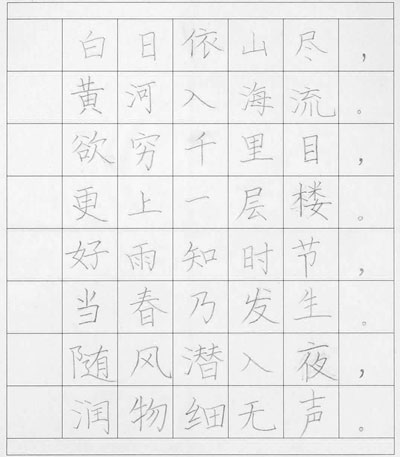 白日依山尽，
黄河入海流。
欲穷千里目，
更上一层楼。
好雨知时节，
当春乃发生。
随风潜入夜，
润物细无声。